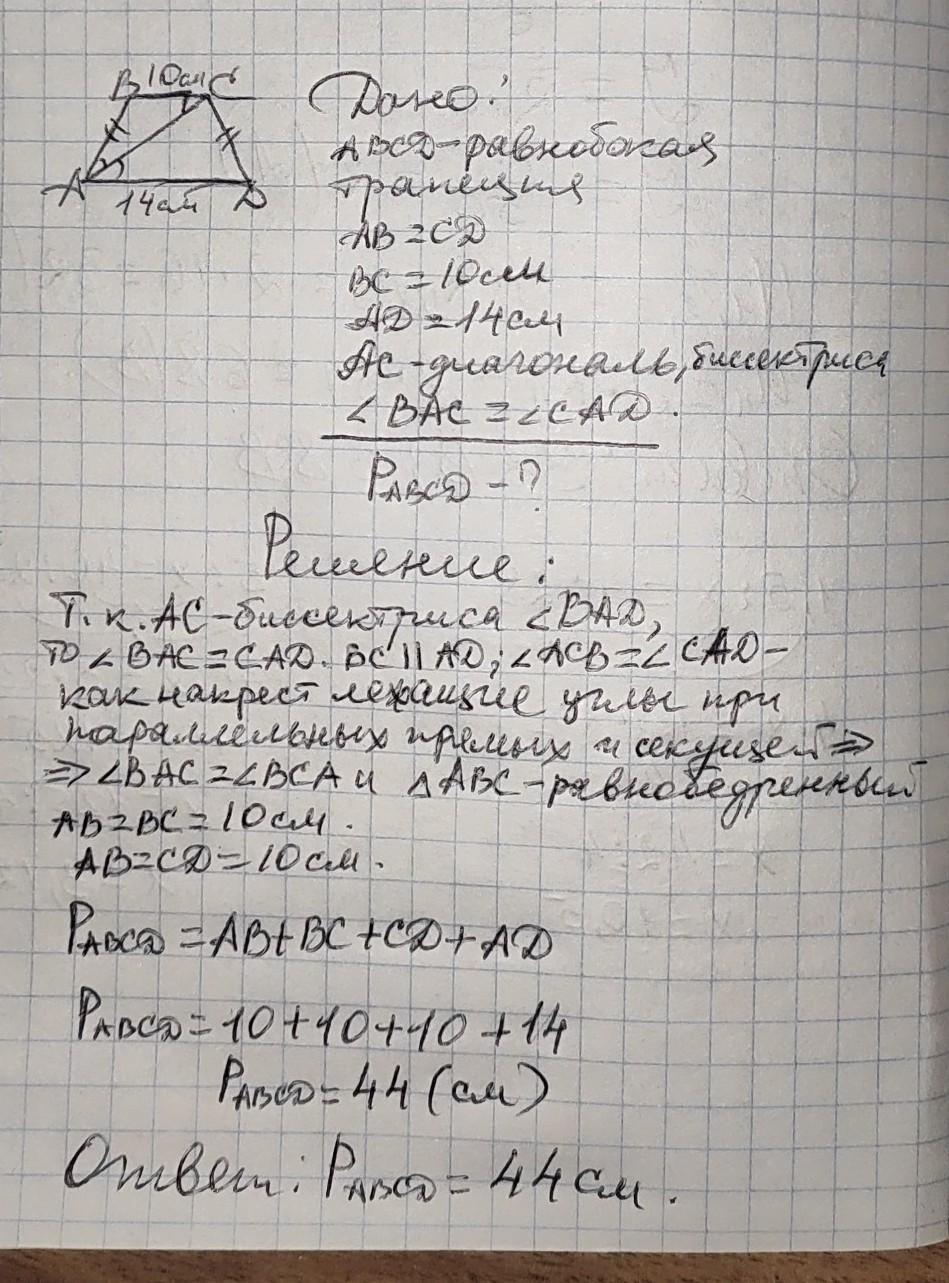 B 10см C
A 14см D
Дано:
ABCD-равнобокая
трапеция
AB=CD
BC=10см
AD=14см
AC-диагональ, биссектриса
∠BAC=∠CAD.
PABCD-?
Решение:
Т.к. AC-биссектриса ∠BAD,
то ∠BAC=CAD. BC||AD; ∠ACB=∠CAD-
как накрест лежащие углы при
параллельных прямых и секущей⇒
⇒∠BAC=∠BCA и △ABC-равнобедренный
AB=BC=10см.
AB=CD=10см.
PABCD=AB+BC+CD+AD
PABCD=10+10+10+14
PABCD=44(см)
Ответ: PABCD=44см.